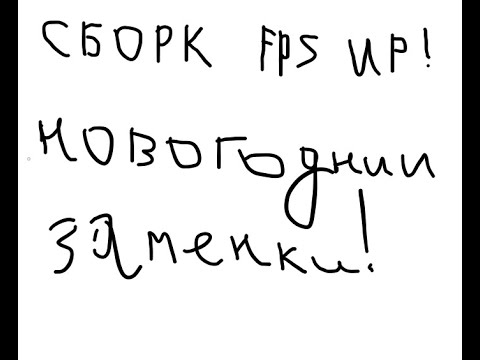 СБОРК FPS UP!
НОВОГОДНИИ
ЗАМЕНКИ!